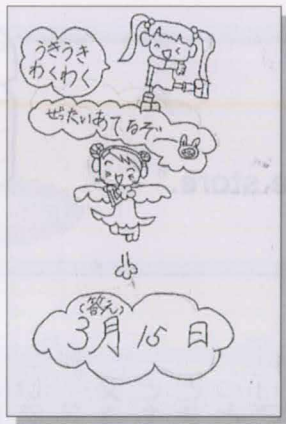 うきうき
わくわく
ぜったいあてなぞ
(答え)
3月15日